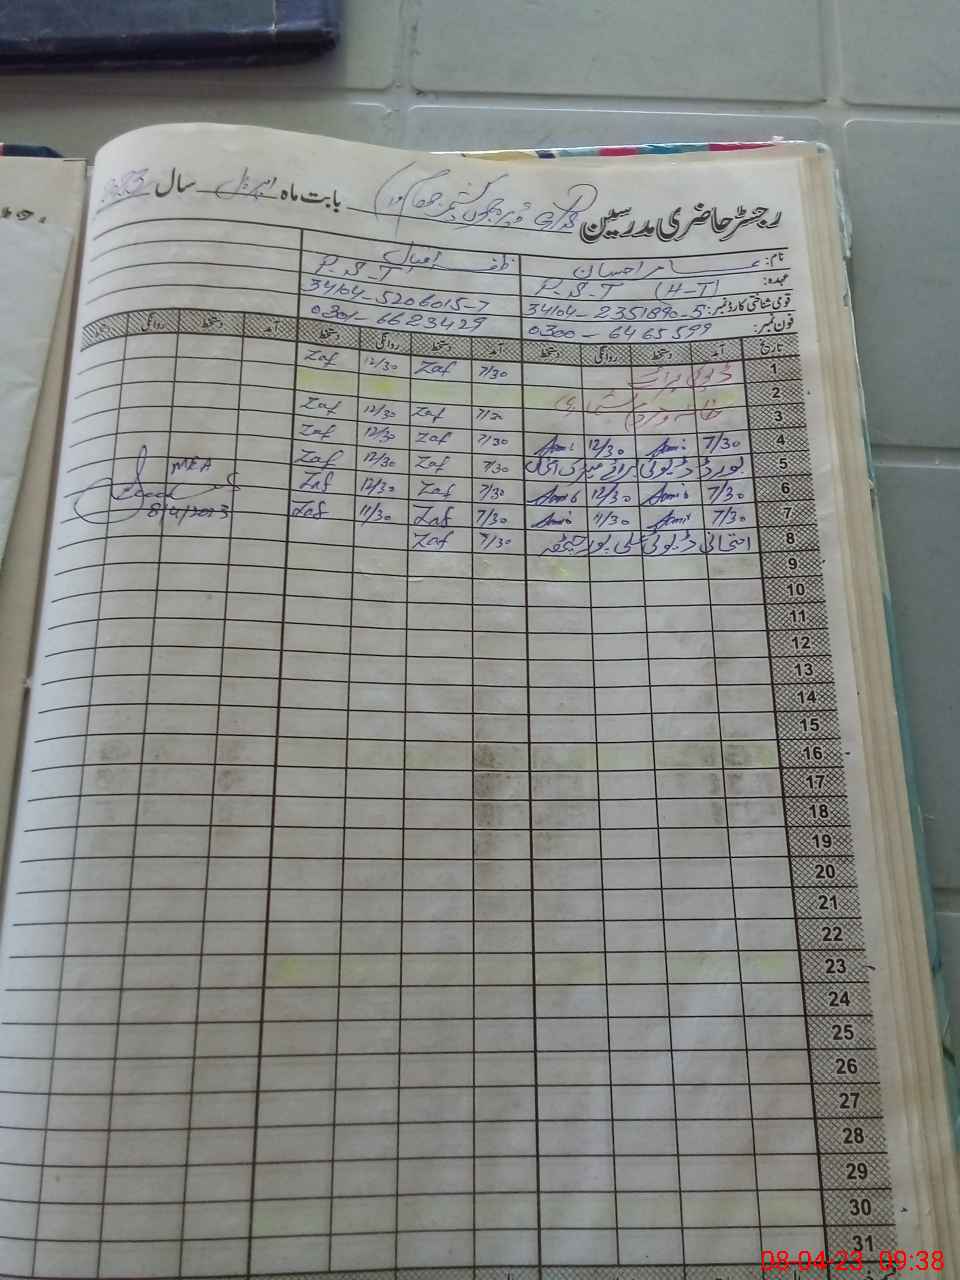 رجسٹر حاضری مدرسین بابت ماہ اپریل سال 2023
نام: عامر احسان ظفر اقبال
عہدہ: P.S.T (H-T) P.S.T
قومی شناختی کارڈ نمبر: 34104-2351890-5 34104-5206015-7
فون نمبر: 0300-6465599 0301-6623429
تاریخ آمد دستخط روانگی دستخط آمد دستخط روانگی دستخط آمد دستخط روانگی دستخط
1 7/30 Zaf 12/30 Zaf
2
3 7/30 Zaf 12/30 Zaf
4 7/30 Ami 12/30 Ami 7/30 Zaf 12/30 Zaf
5 بورڈ ڈیوٹی برائے 7/30 Zaf 12/30 Zaf
6 7/30 Ami 12/30 Ami 7/30 Zaf 12/30 Zaf
7 7/30 Ami 11/30 Ami 7/30 Zaf 11/30 Zaf
8 امتحانی ڈیوٹی 7/30 Zaf
MEA
8/4/2023
9
10
11
12
13
14
15
16
17
18
19
20
21
22
23
24
25
26
27
28
29
30
31
08-04-23 09:38